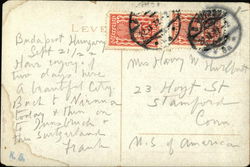 LEVE
Budapest Hungary
Sept 21/22
Have enjoyed
two days here
A beautiful City
Back to Vienna
today & then on
to Innsbruck &
then Switzerland
Frank
Mrs Harry W Hurlbutt
23 Hoyt St
Stamford
Conn
U.S of American